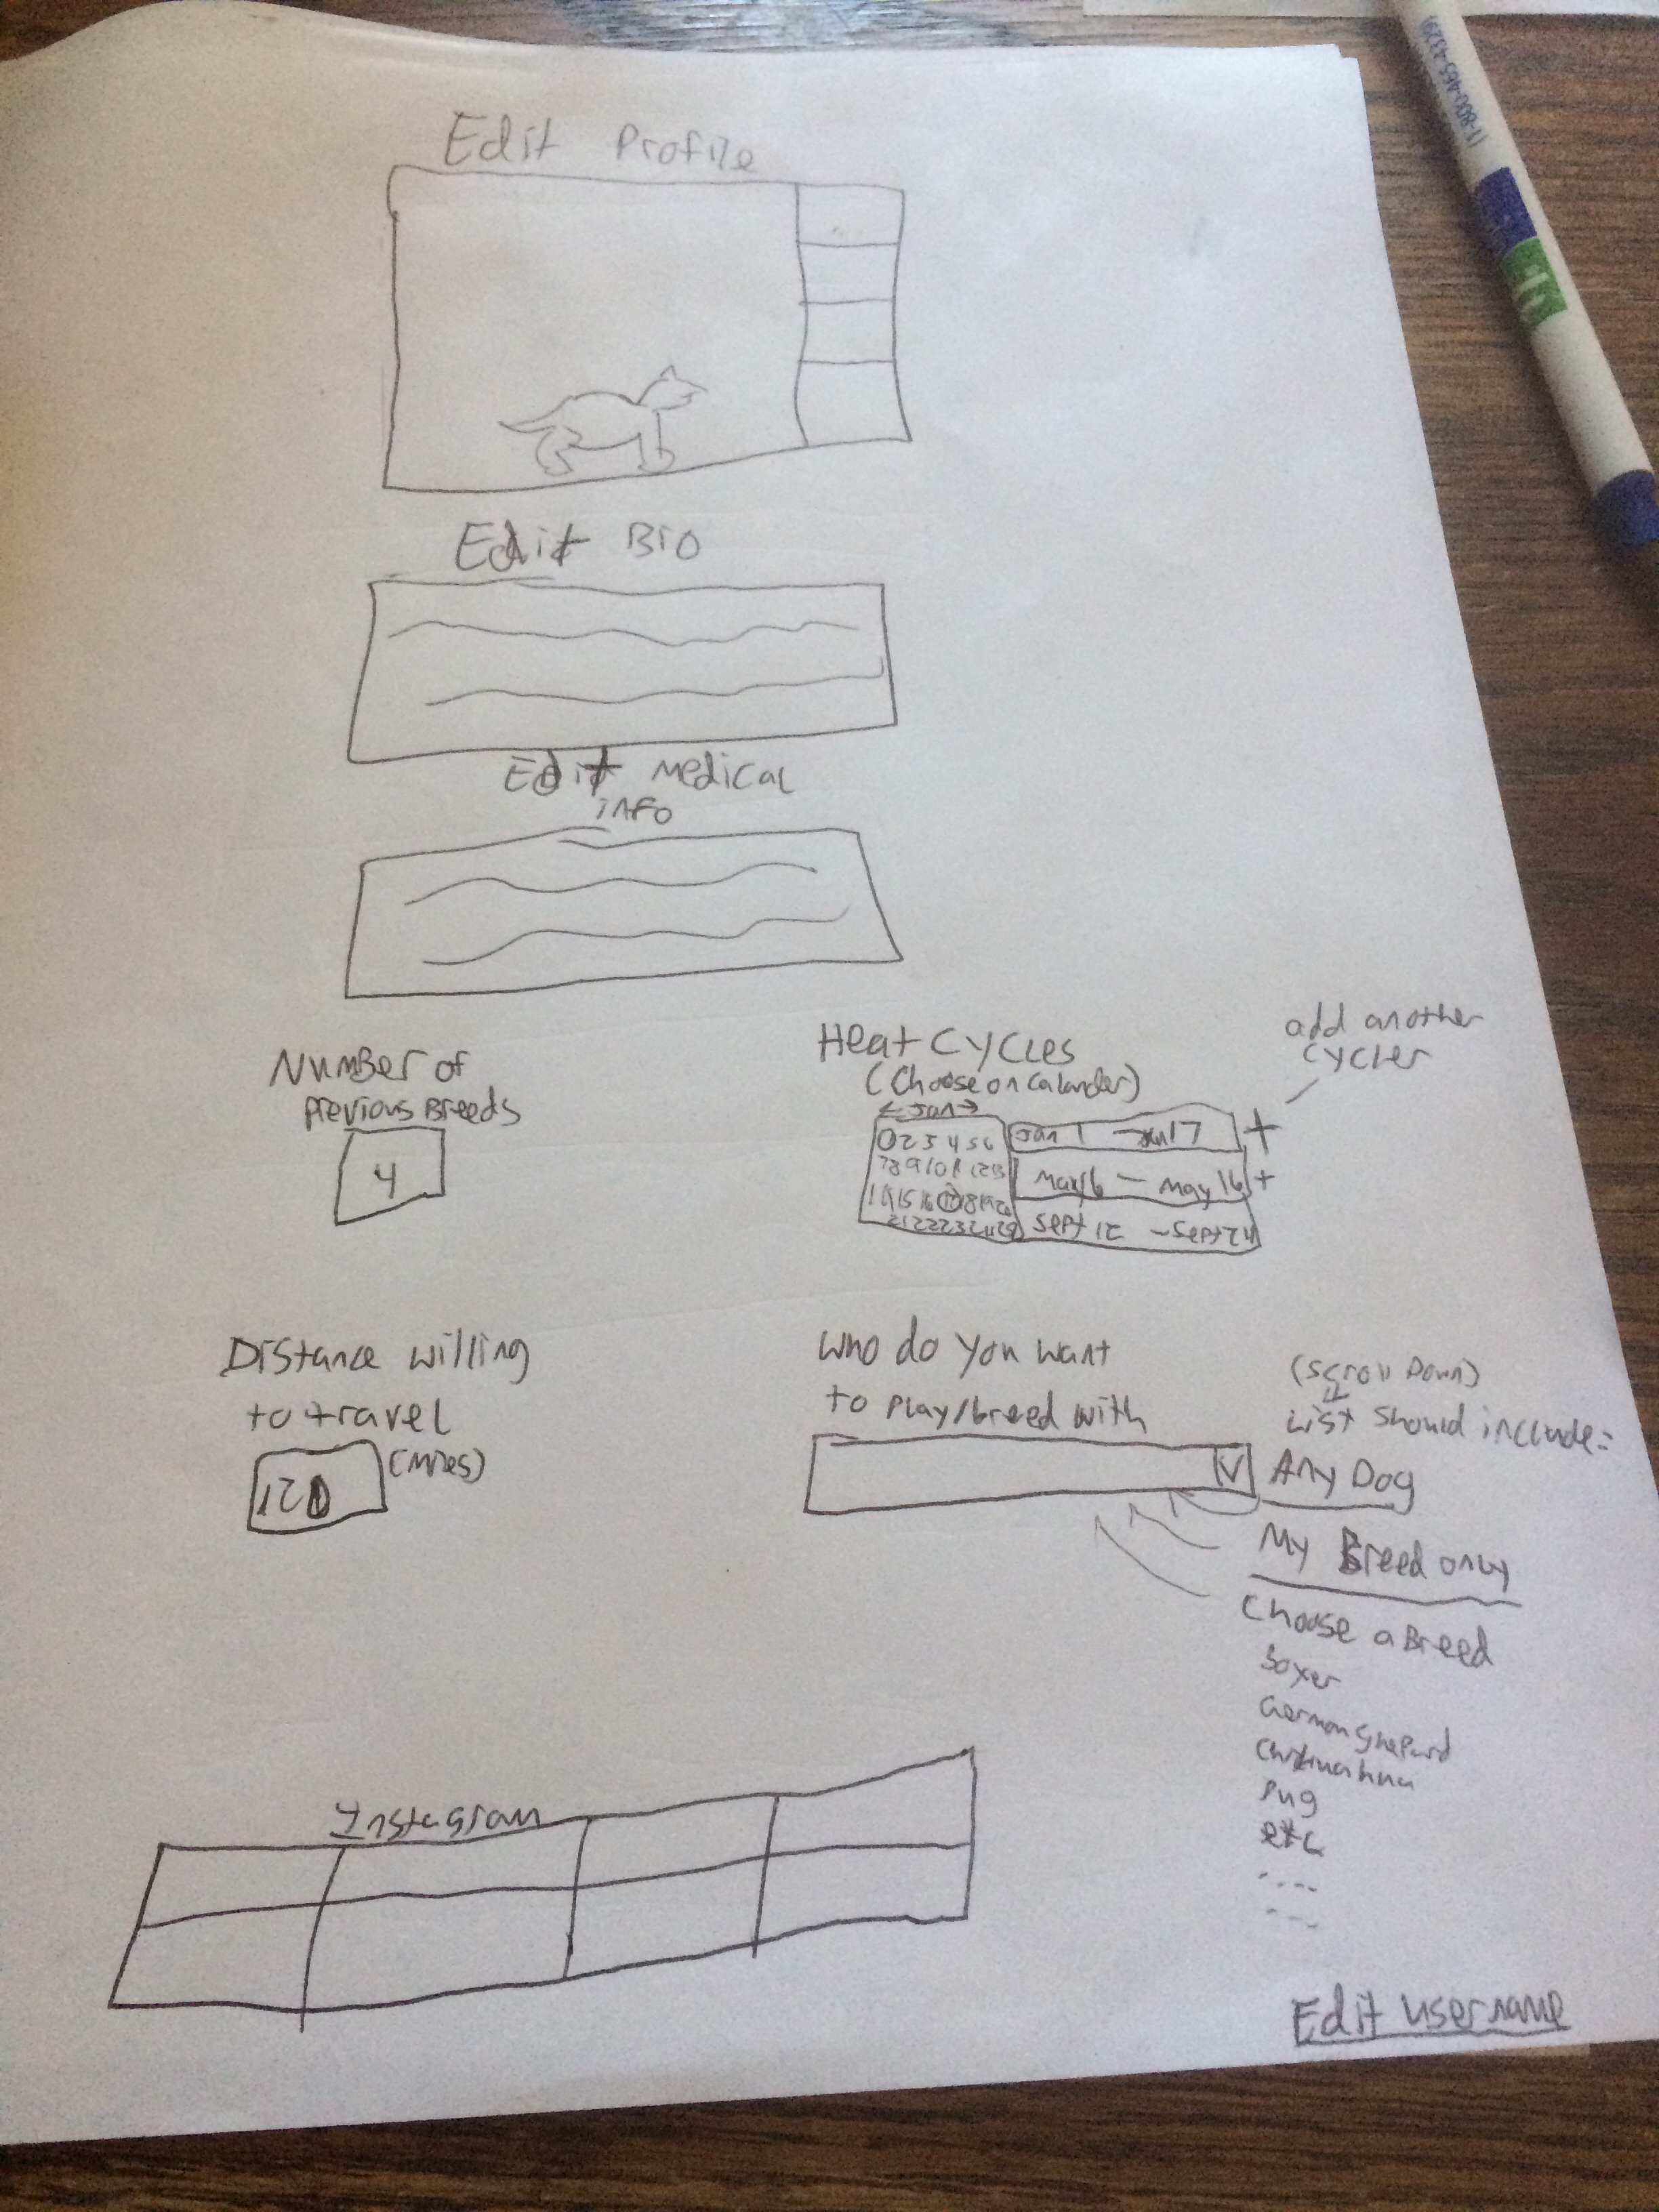 1-800-465-4329)
Edit Profile
Edit Bio
Edit Medical
info
Number of
previous Breeds
4
Heat Cycles
(Choose on Calander)
add another
cycler
← Jan →
Jan 1 - Jan 17 +
1 2 3 4 5 6
7 8 9 10 11 12 13
May 6 - May 16 +
14 15 16 17 18 19 20
21 22 23 24 25
Sept 12 - Sept 24
Distance willing
to travel
120
(Miles)
who do you want
to play/breed with
V
(Scroll Down)
List should include:
Any Dog
My Breed only
Choose a Breed
Boxer
German Shepard
Chihuahua
Pug
etc
....
...
Instagram
Edit username